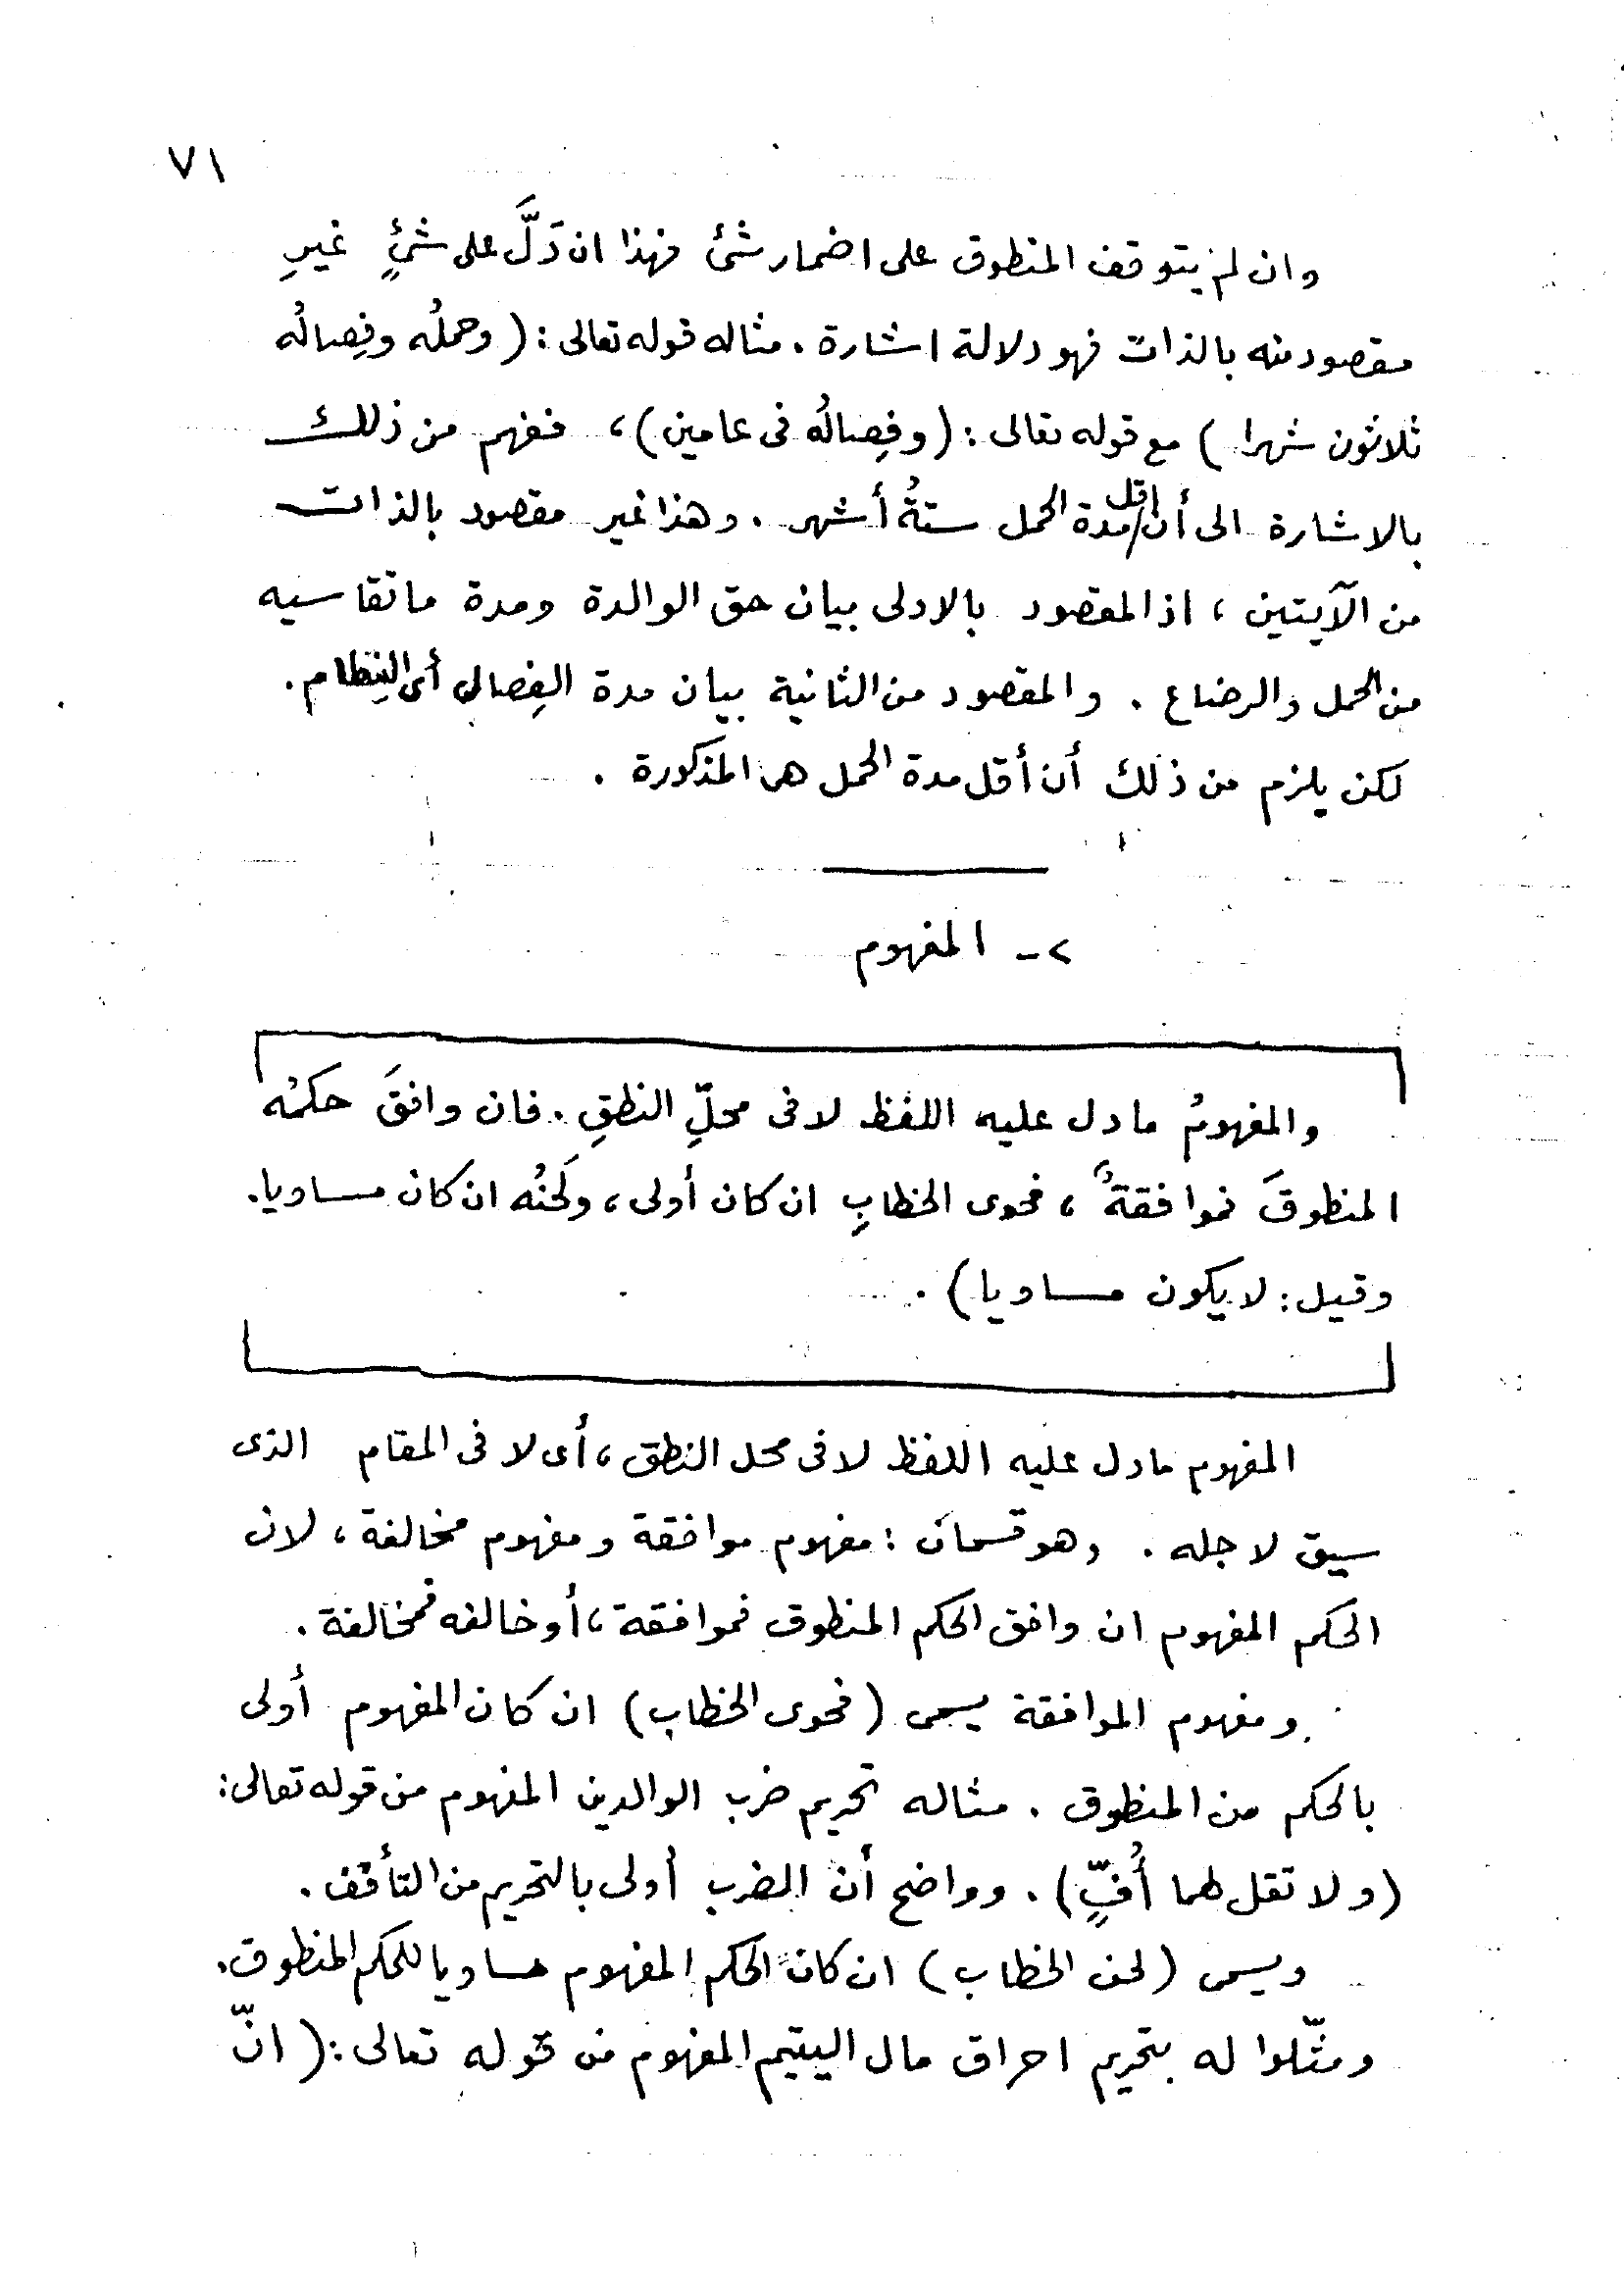 ٧١
وان لم يتوقف المنطوق على اضمار شئ فهذا ان دَلَّ على شئٍ غيرِ
مقصود منه بالذات فهو دلالة اشارة . مثاله قوله تعالى : ( وحملُه وفِصالُه
ثلاثون شهرا ) مع قوله تعالى : ( وفِصالُه فى عامين ) ، ففهم من ذلك
بالاشارة الى أن اقل مدة الحمل ستةُ أشهر . وهذا غير مقصود بالذات
من الآيتين ، اذ المقصود بالاولى بيان حق الوالدة ومدة ما تقاسيه
من الحمل والرضاع . والمقصود من الثانية بيان مدة الفِصال أى الفِطام .
لكن يلزم من ذلك أن أقل مدة الحمل هى المذكورة .
٢ - المفهوم
والمفهومُ ما دل عليه اللفظ لا فى محلِّ النطقِ . فان وافقَ حكمُه
المنطوقَ فموافقةٌ ، فحوى الخطابِ ان كان أولى ، ولحنُه ان كان مساويا .
وقيل : لا يكون مساويا ) .
المفهوم ما دل عليه اللفظ لا فى محل النطق ، أى لا فى المقام الذى
سيق لاجله . وهو قسمان : مفهوم موافقة ومفهوم مخالفة ، لان
الحكم المفهوم ان وافق الحكم المنطوق فموافقة ، أو خالفه فمخالفة .
ومفهوم الموافقة يسمى ( فحوى الخطاب ) ان كان المفهوم أولى
بالحكم من المنطوق . مثاله تحريم ضرب الوالدين المفهوم من قوله تعالى :
( ولا تقل لهما أُفٍّ ) . وواضح أن الضرب أولى بالتحريم من التأفف .
ويسمى ( لحن الخطاب ) ان كان الحكم المفهوم مساويا للحكم المنطوق .
ومثّلوا له بتحريم احراق مال اليتيم المفهوم من قوله تعالى : ( انّ